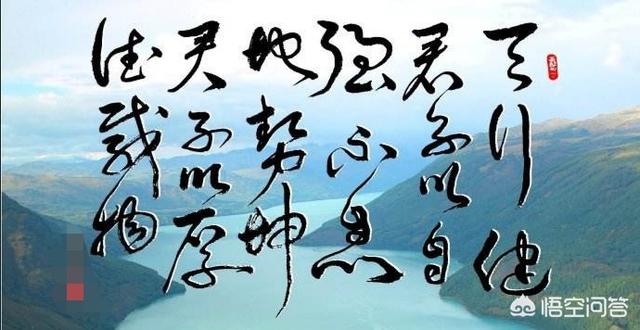 天行健
君子以自
强不息
地势坤
君子以厚
德载物
悟空问答